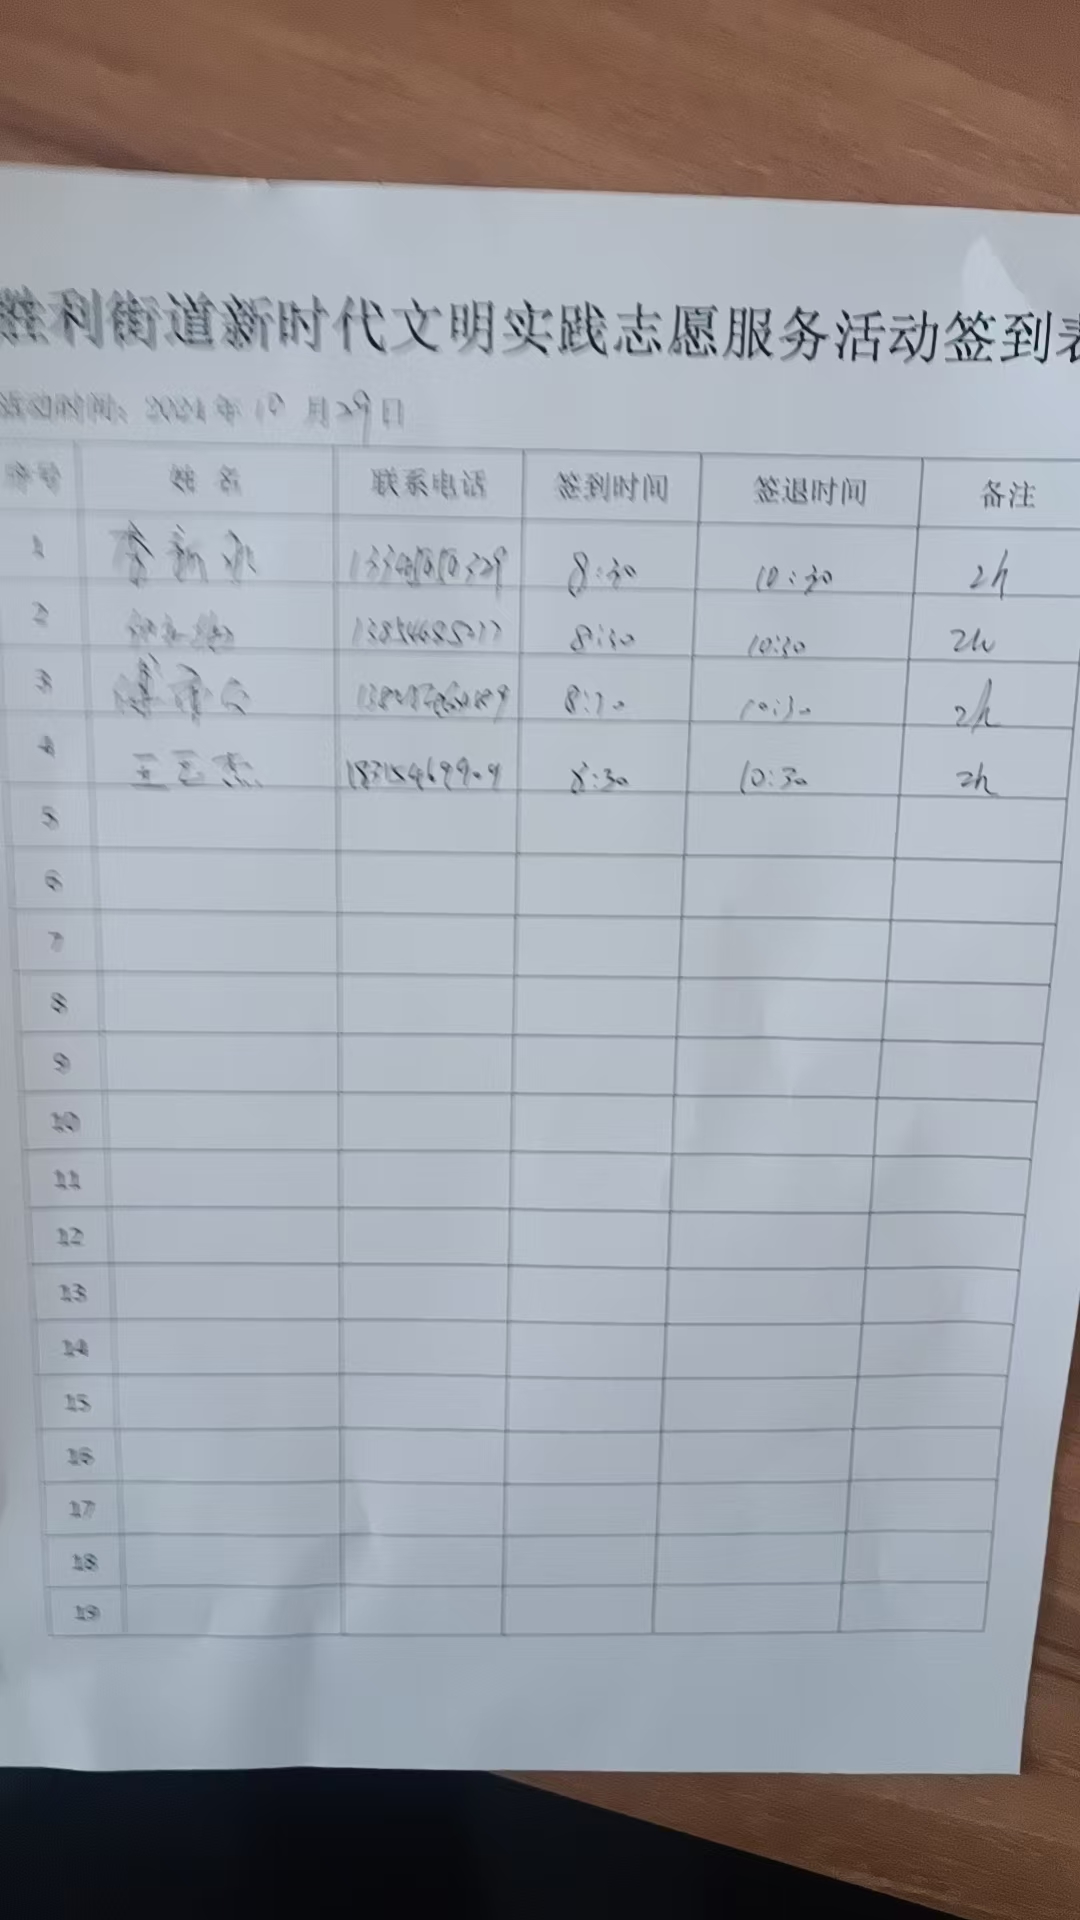 胜利街道新时代文明实践志愿服务活动签到表
活动时间：2024年10月29日
序号 姓名 联系电话 签到时间 签退时间 备注
1 李新永 8:30 10:30 2h
2 8:30 10:30 2h
3 8:30 10:30 2h
4 王玉杰 8:30 10:30 2h
5
6
7
8
9
10
11
12
13
14
15
16
17
18
19